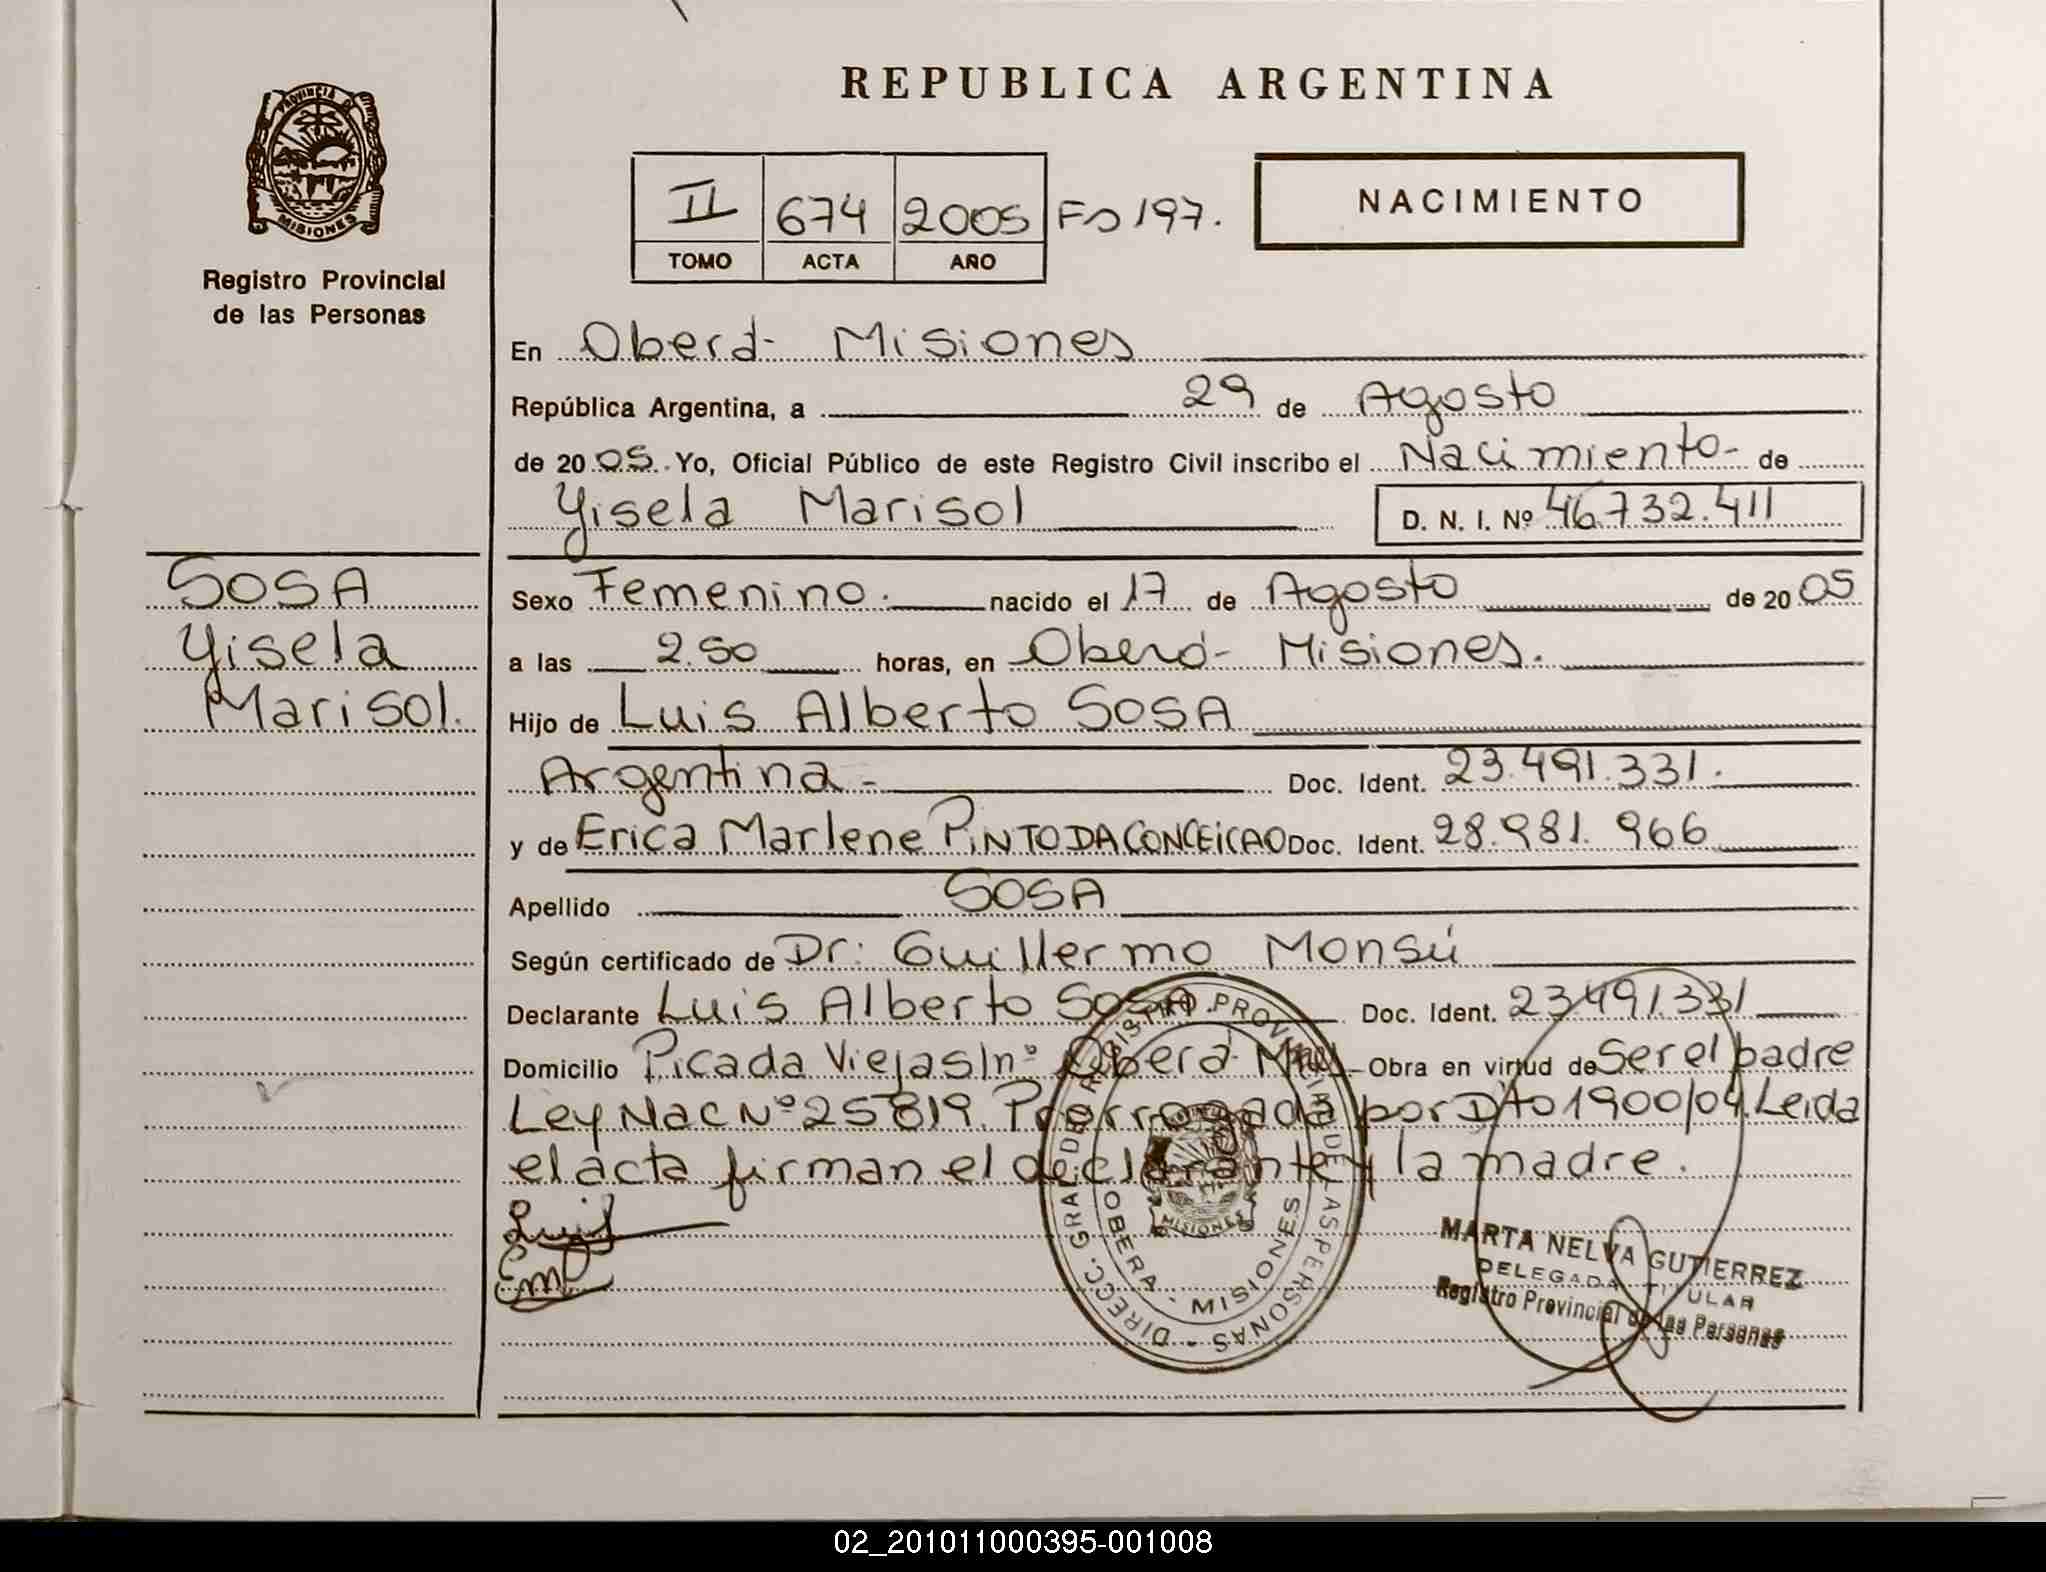 REPUBLICA ARGENTINA
PROVINCIA DE
MISIONES
Registro Provincial
de las Personas
II 674 2005 Fo 197.
TOMO ACTA AÑO
NACIMIENTO
En Oberá- Misiones
República Argentina, a 29 de Agosto
de 2005. Yo, Oficial Público de este Registro Civil inscribo el Nacimiento- de
Yisela Marisol D. N. I. Nº 46.732.411
SOSA
Yisela
Marisol.
Sexo Femenino. nacido el 17 de Agosto de 2005
a las 2.50 horas, en Oberá- Misiones.
Hijo de Luis Alberto SOSA
Argentina- Doc. Ident. 23.491.331.
y de Erica Marlene PINTO DA CONCEICAO Doc. Ident. 28.981.966
Apellido SOSA
Según certificado de Dr: Guillermo Monsú
Declarante Luis Alberto SOSA Doc. Ident. 23491.331
Domicilio Picada Vieja s/nº Oberá- Mnes- Obra en virtud de Ser el padre
Ley Nac Nº 25819. Prorrogada por Dto 1900/04. Leida
el acta firman el declarante y la madre.
Luis
DIRECC. GRAL DE REGISTRO PROVINCIAL DE LAS PERSONAS
OBERA - MISIONES
MISIONES
MARTA NELVA GUTIERREZ
DELEGADA TITULAR
Registro Provincial de las Personas
02_201011000395-001008